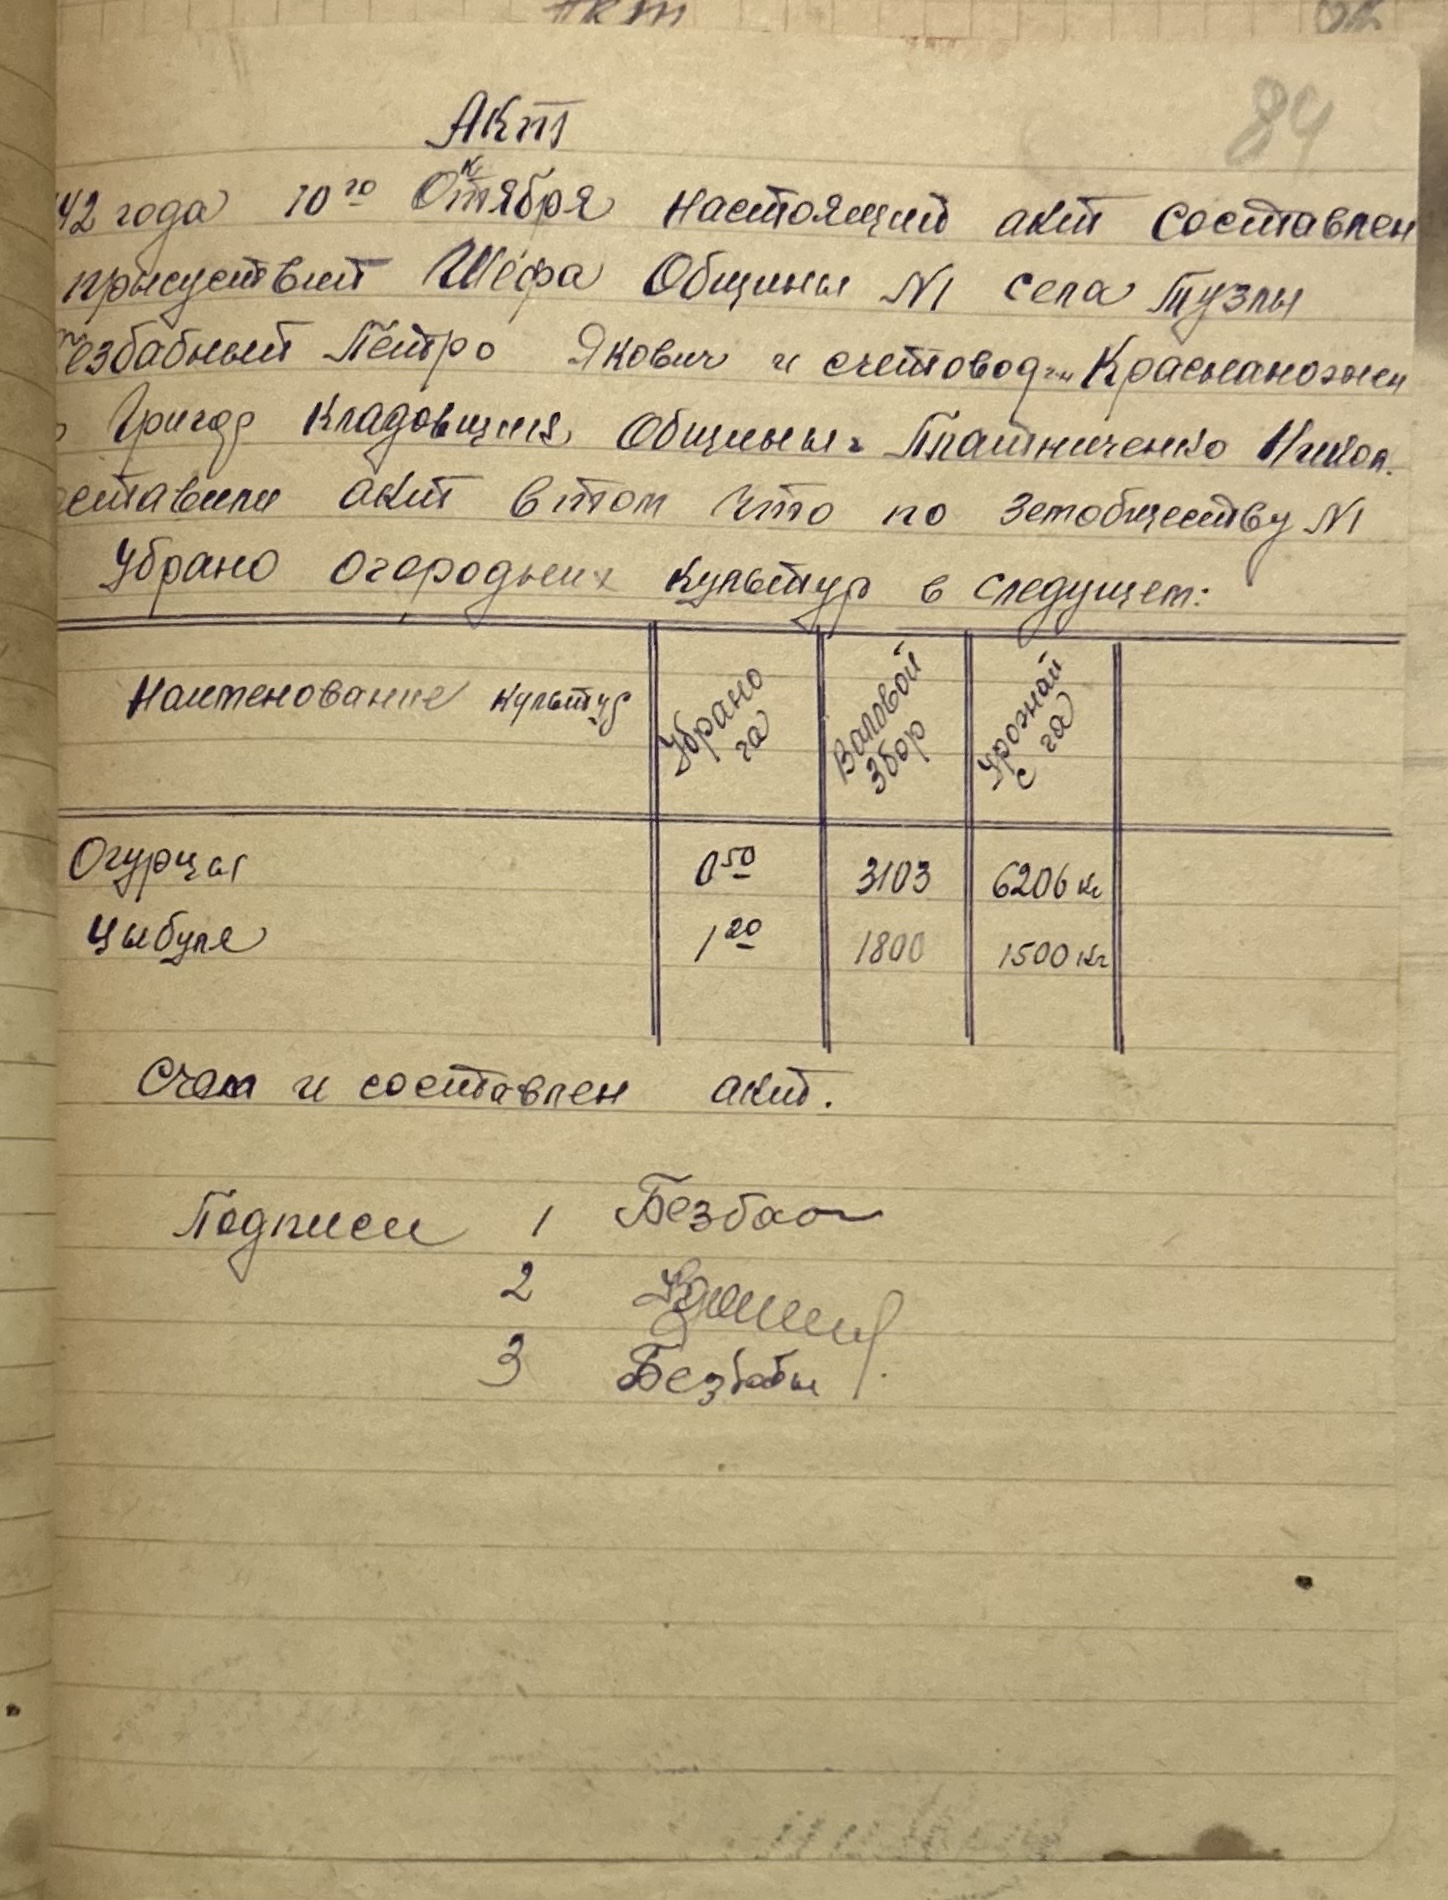 Акт
84
42 года 10го Октября настоящий акт составлен
присуствии Шефа Общины №1 села Тузлы
Безбабный Пётро Якович и счетовод
Григор Кладовщик Общины Платниченко Никол.
оставили акт в том что по земобществу №1
Убрано огородних культур в следущем:
Наименование культур
Убрано га
Валовой Збор
Урожай с га
Огурцы 0 50 3103 6206 кг
Цыбуля 1 20 1800 1500 кг
Счем и составлен акт.
Подписи 1
2
3